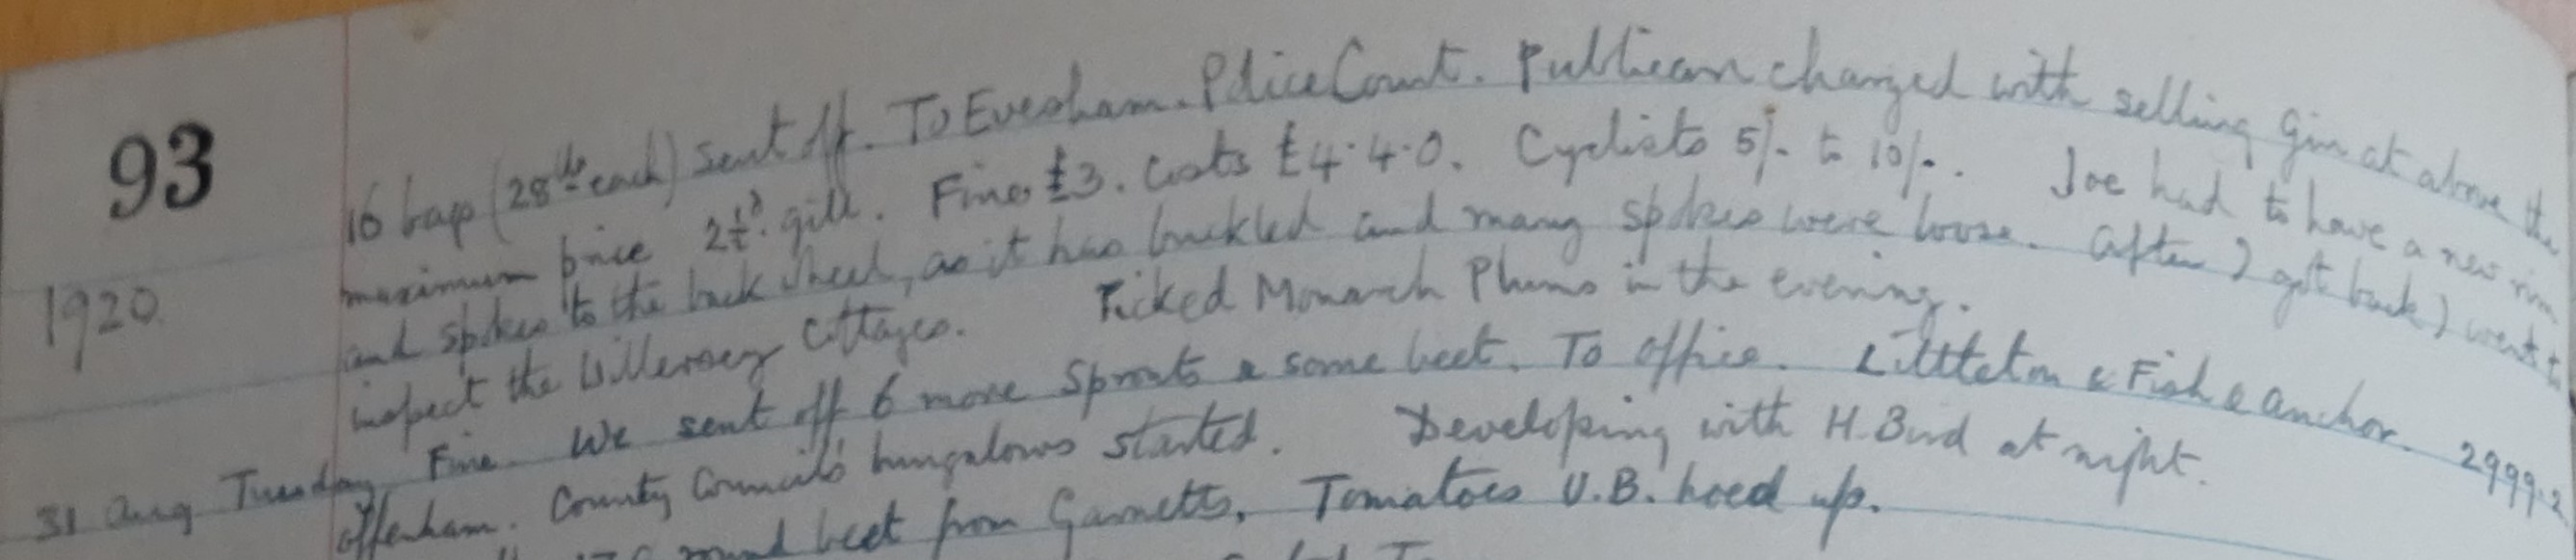 93
16 bags (28lb each) sent off. To Evesham. Police Court. Publican charged with selling gin at above the
maximum price 2½d. gill. Fines £3. Costs £4.4.0. Cyclists 5/- to 10/-. Joe had to have a new rim
and spokes to the back wheel, as it has buckled and many spokes were loose. After I got back I went to
1920
inspect the Willersey Cottages. Picked Monarch Plums in the evening.
31 Aug Tuesday Fine. We sent off 6 more Sprouts & some beet. To office. Littleton & Fish & Anchor. 2999.2
Offenham. County Council's bungalows started. Developing with H. Bird at night.
round beet from Garnetts, Tomatoes U.B. hoed up.